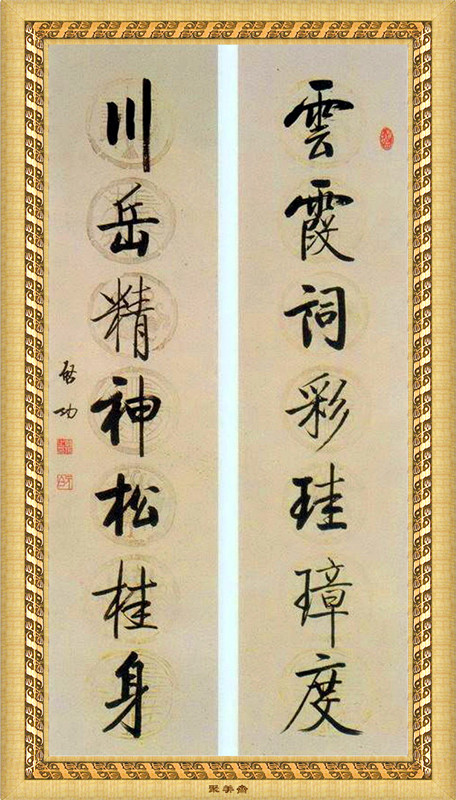 雲霞詞彩珪璋度
川岳精神松桂身
啓功
聚美斋